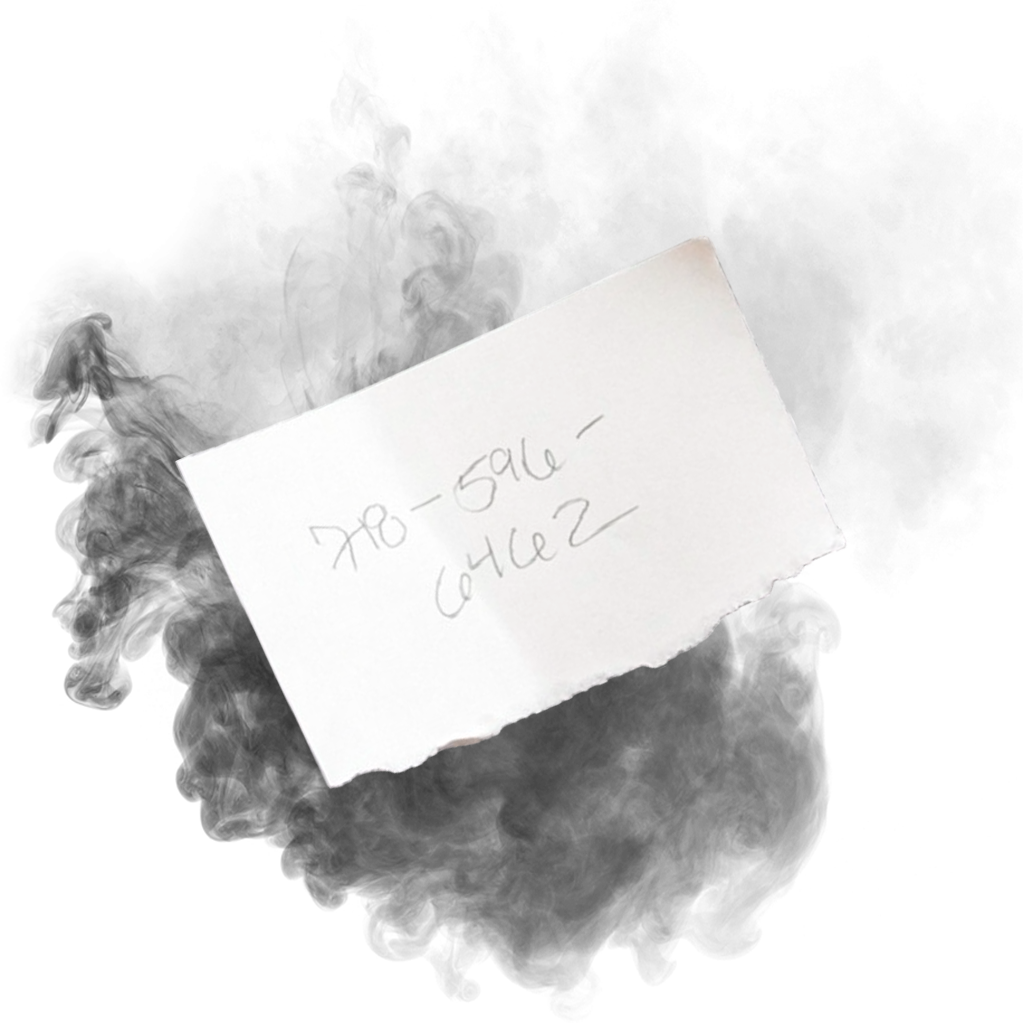 718-596-
6462